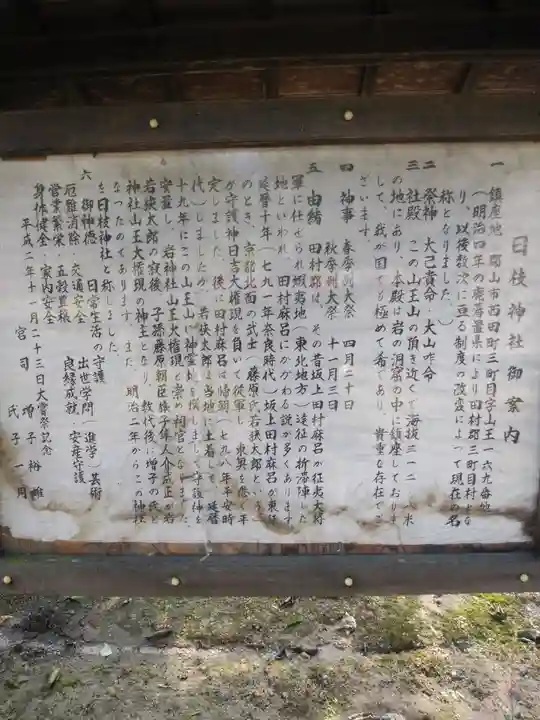 日枝神社御案内
一 鎮座地 郡山市西田町三町目字山王一六九番地
（明治四年の廃藩置県により田村郡三町目村とな
り、以後数次に亘る制度の改変によって現在の名
称となりました。）
二 祭神 大己貴命・大山咋命
三 社殿 この山王山の頂き近くで海抜三一二・八米
の地にあり、本殿は岩の洞窟の中に鎮座しておりま
して、我が国でも極めて希であり、貴重な存在でご
ざいます。
四 神事 春季例大祭 四月二十日
秋季例大祭 十一月三日
五 由緒 田村郡は、その昔坂上田村麻呂が征夷大将
軍に任ぜられ蝦夷地（東北地方）遠征の折滞陣した
地といわれ、田村麻呂にかかわる説が多くあります
延暦十年（七九一年奈良時代）坂上田村麻呂が東征
のとき、京都北面の武士（藤原氏若狭太郎という）
が守護神日吉大権現を負いて従軍し、東奥を悉く平
定しました。後に田村麻呂は帰朝（七九八年平安時
代）しましたが、若狭太郎は当地に土着して、延暦
十九年にこの山王山に神霊地を撰しまして守護神を
安置し、岩神社山王大権現と崇め祠官となりました
若狭太郎の歿後、子孫藤原朝臣族子隼人介成正が岩
神社山王大権現の神主となり、数代後に増子の氏と
なったのであります。また、明治二年からこの神社
を日枝神社と称しました。
六 御神徳 日常生活の守護 出世学問（進学）芸術
厄難消除 交通安全 良縁成就・安産守護
営業繁栄 五穀豊穣
身体健全 家内安全
平成二年十一月二十三日大嘗祭記念
宮司 増子裕雄
氏子一同